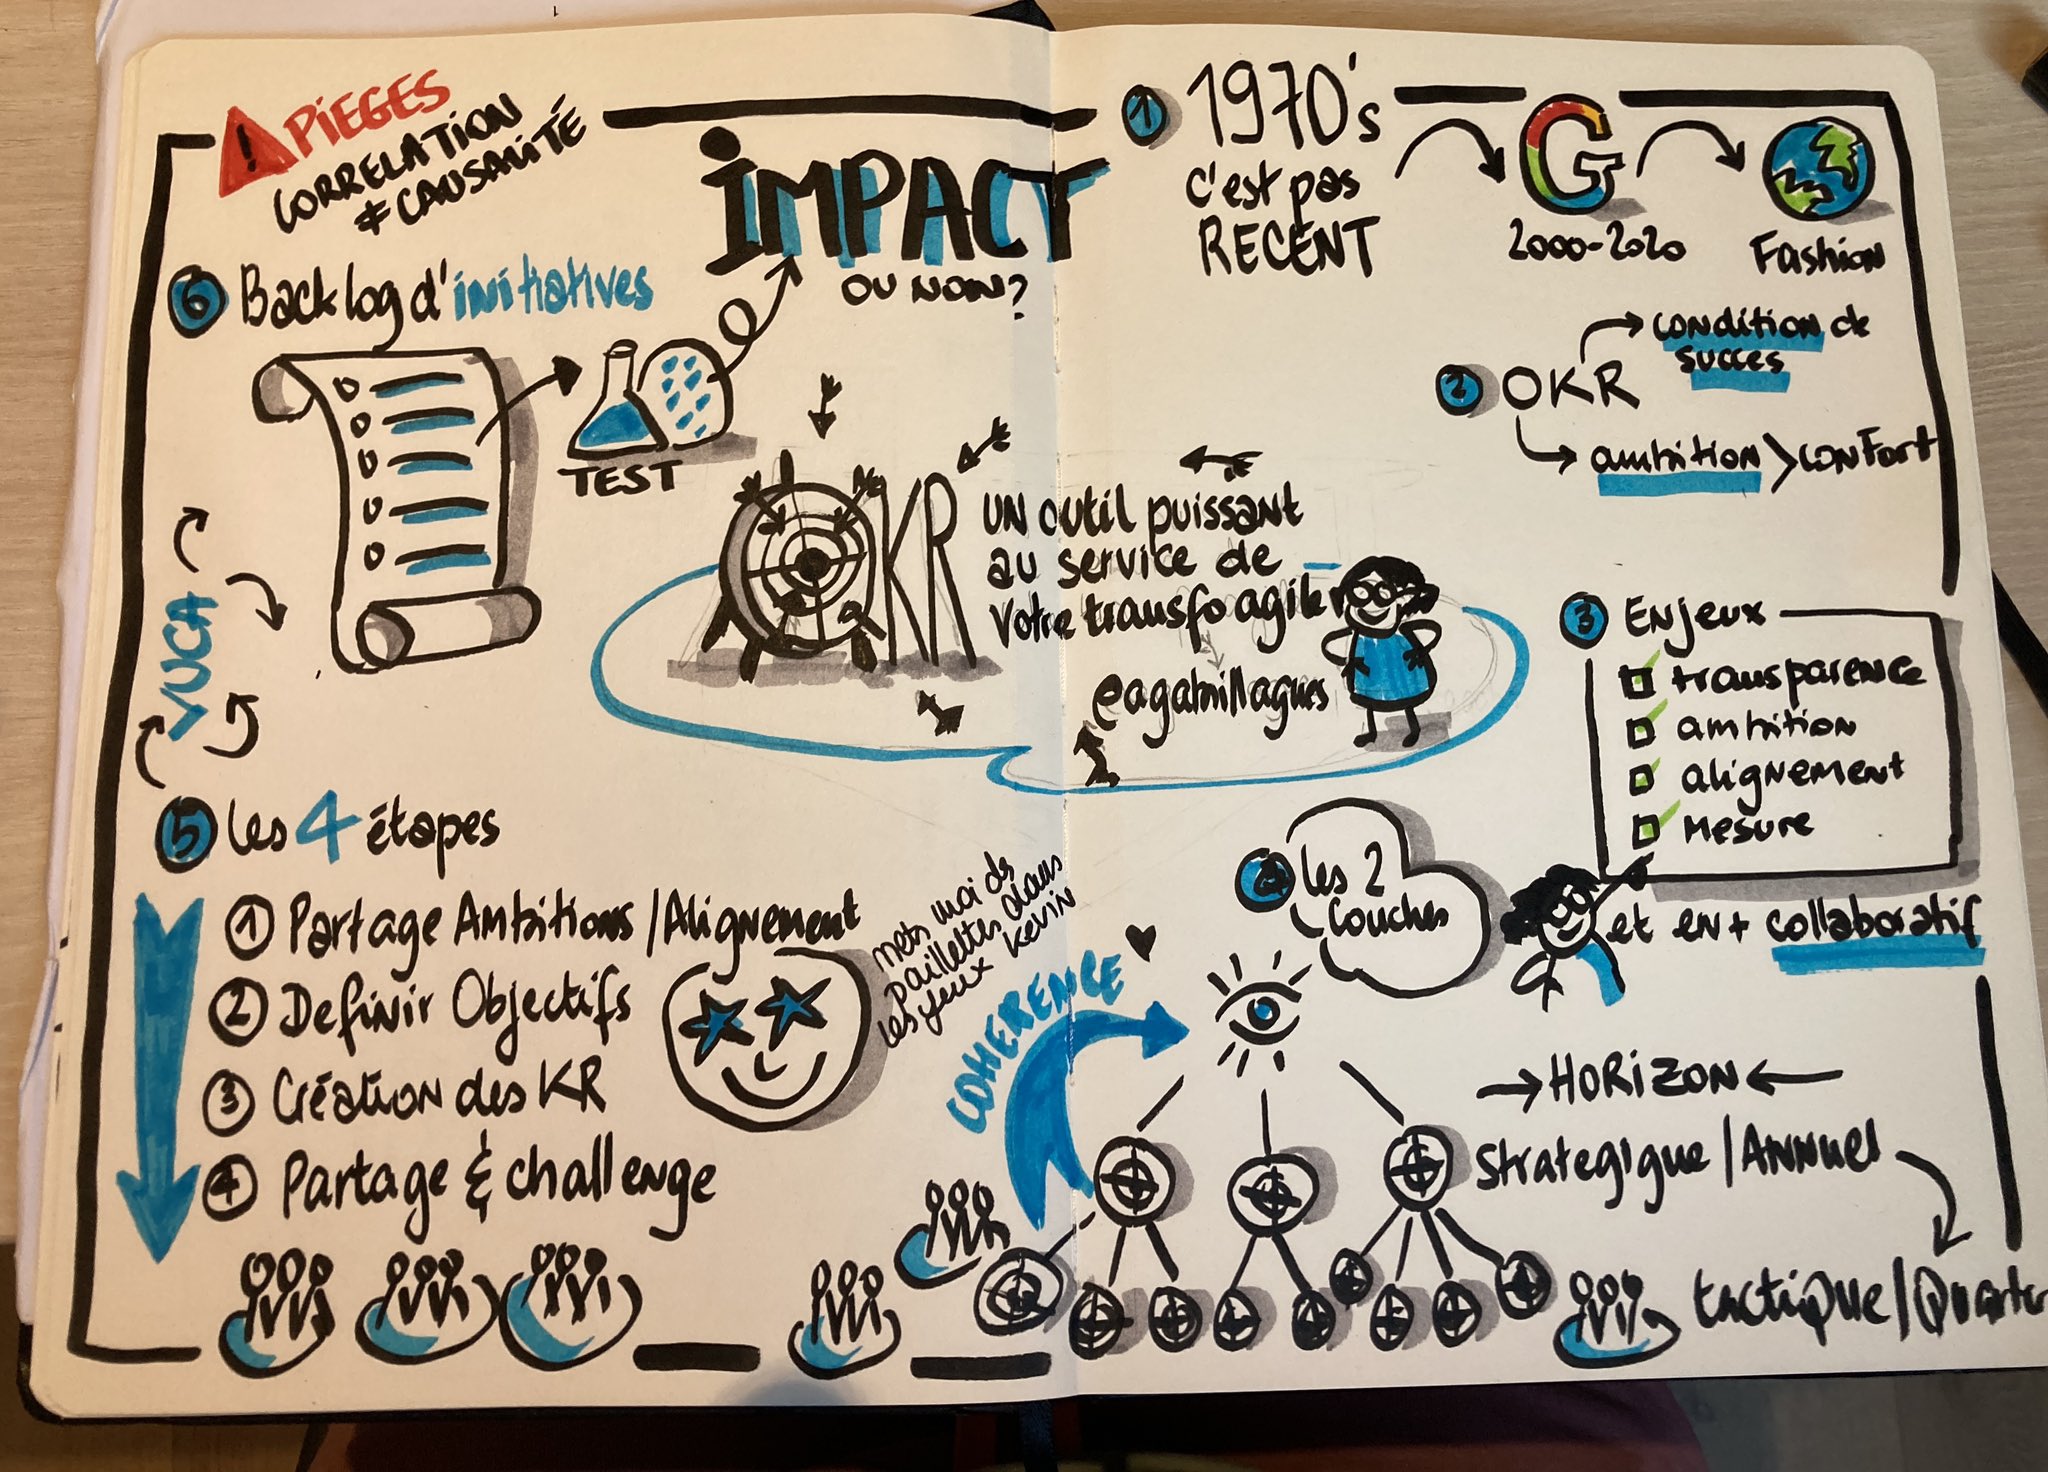 OKR
UN outil puissant
au service de
votre transfo agile
@agatnillagues
1
1970's
c'est pas
RECENT
G
2000-2020
Fashion
2
OKR
condition de
succes
ambition > confort
3
Enjeux
transparence
ambition
alignement
mesure
et en + collaboratif
les 2
couches
COHERENCE
HORIZON
Strategique / ANNUEL
tactique / Quarter
5
les 4 étapes
1 Partage Ambitions / Alignement
2 Définir Objectifs
3 Création des KR
4 Partage & challenge
mets moi des
paillettes dans
les yeux Kevin
VUCA
6
Backlog d'initiatives
TEST
IMPACT
OU NON?
! PIEGES
CORRELATION
≠ CAUSALITÉ